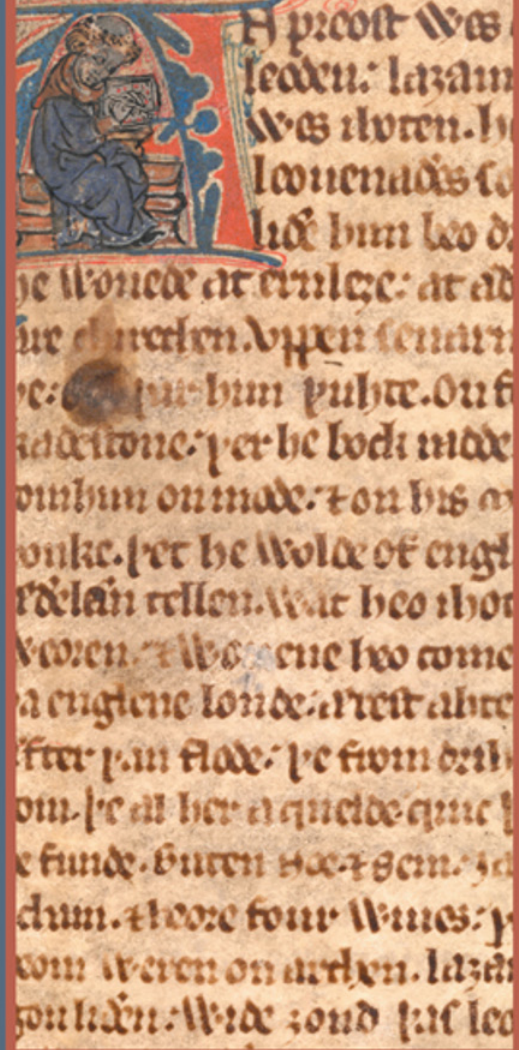 A preost wes
leoden. laȝam
wes ihoten. h
leouenaðes so
liðe him beo d
he wonede at ernleȝe: at að
chirechen. vppen seuarn
him þuhte. on f
radestone: þer he bock radde
om him on mode. ⁊ on his
onke. þet he wolde of engl
æðelæn tellen. wat heo ihot
weoren. ⁊ wonene heo come
a englene londe. ærest ahte
fter þan flode. þe from drih
om. þe al her a quelde quic
e funde. buten noe. ⁊ sem:
cham. ⁊ heore four wiues:
eom weren on archen. laȝa
gon liðen: wide ȝond þas leo